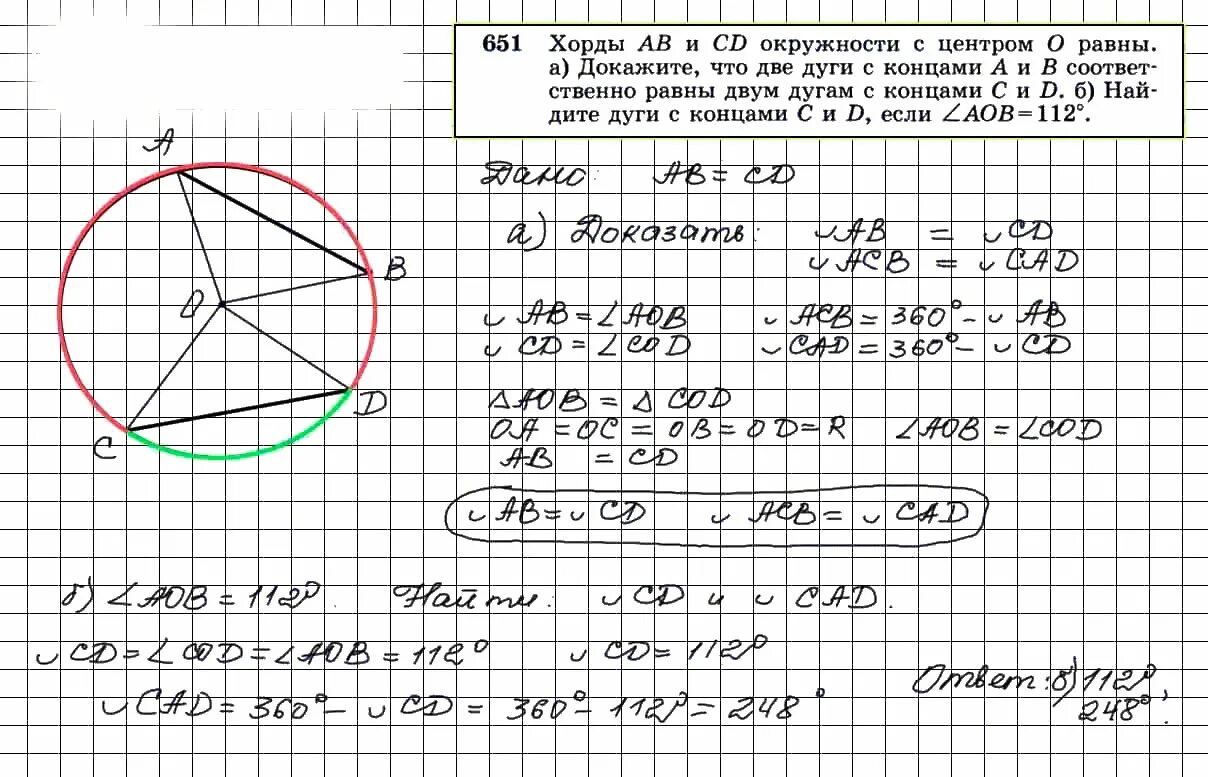 651 Хорды AB и CD окружности с центром O равны.
а) Докажите, что две дуги с концами A и B соответ-
ственно равны двум дугам с концами C и D. б) Най-
дите дуги с концами C и D, если ∠AOB=112°.
A
B
O
D
C
Дано: AB = CD
а) Доказать: ◡AB = ◡CD
◡ACB = ◡CAD
◡AB = ∠AOB ◡ACB = 360° - ◡AB
◡CD = ∠COD ◡CAD = 360° - ◡CD
△AOB = △COD
OA = OC = OB = OD = R ∠AOB = ∠COD
AB = CD
◡AB = ◡CD ◡ACB = ◡CAD
б) ∠AOB = 112°. Найти: ◡CD и ◡CAD.
◡CD = ∠COD = ∠AOB = 112° ◡CD = 112°
◡CAD = 360° - ◡CD = 360° - 112° = 248°
Ответ: б) 112°;
248°.